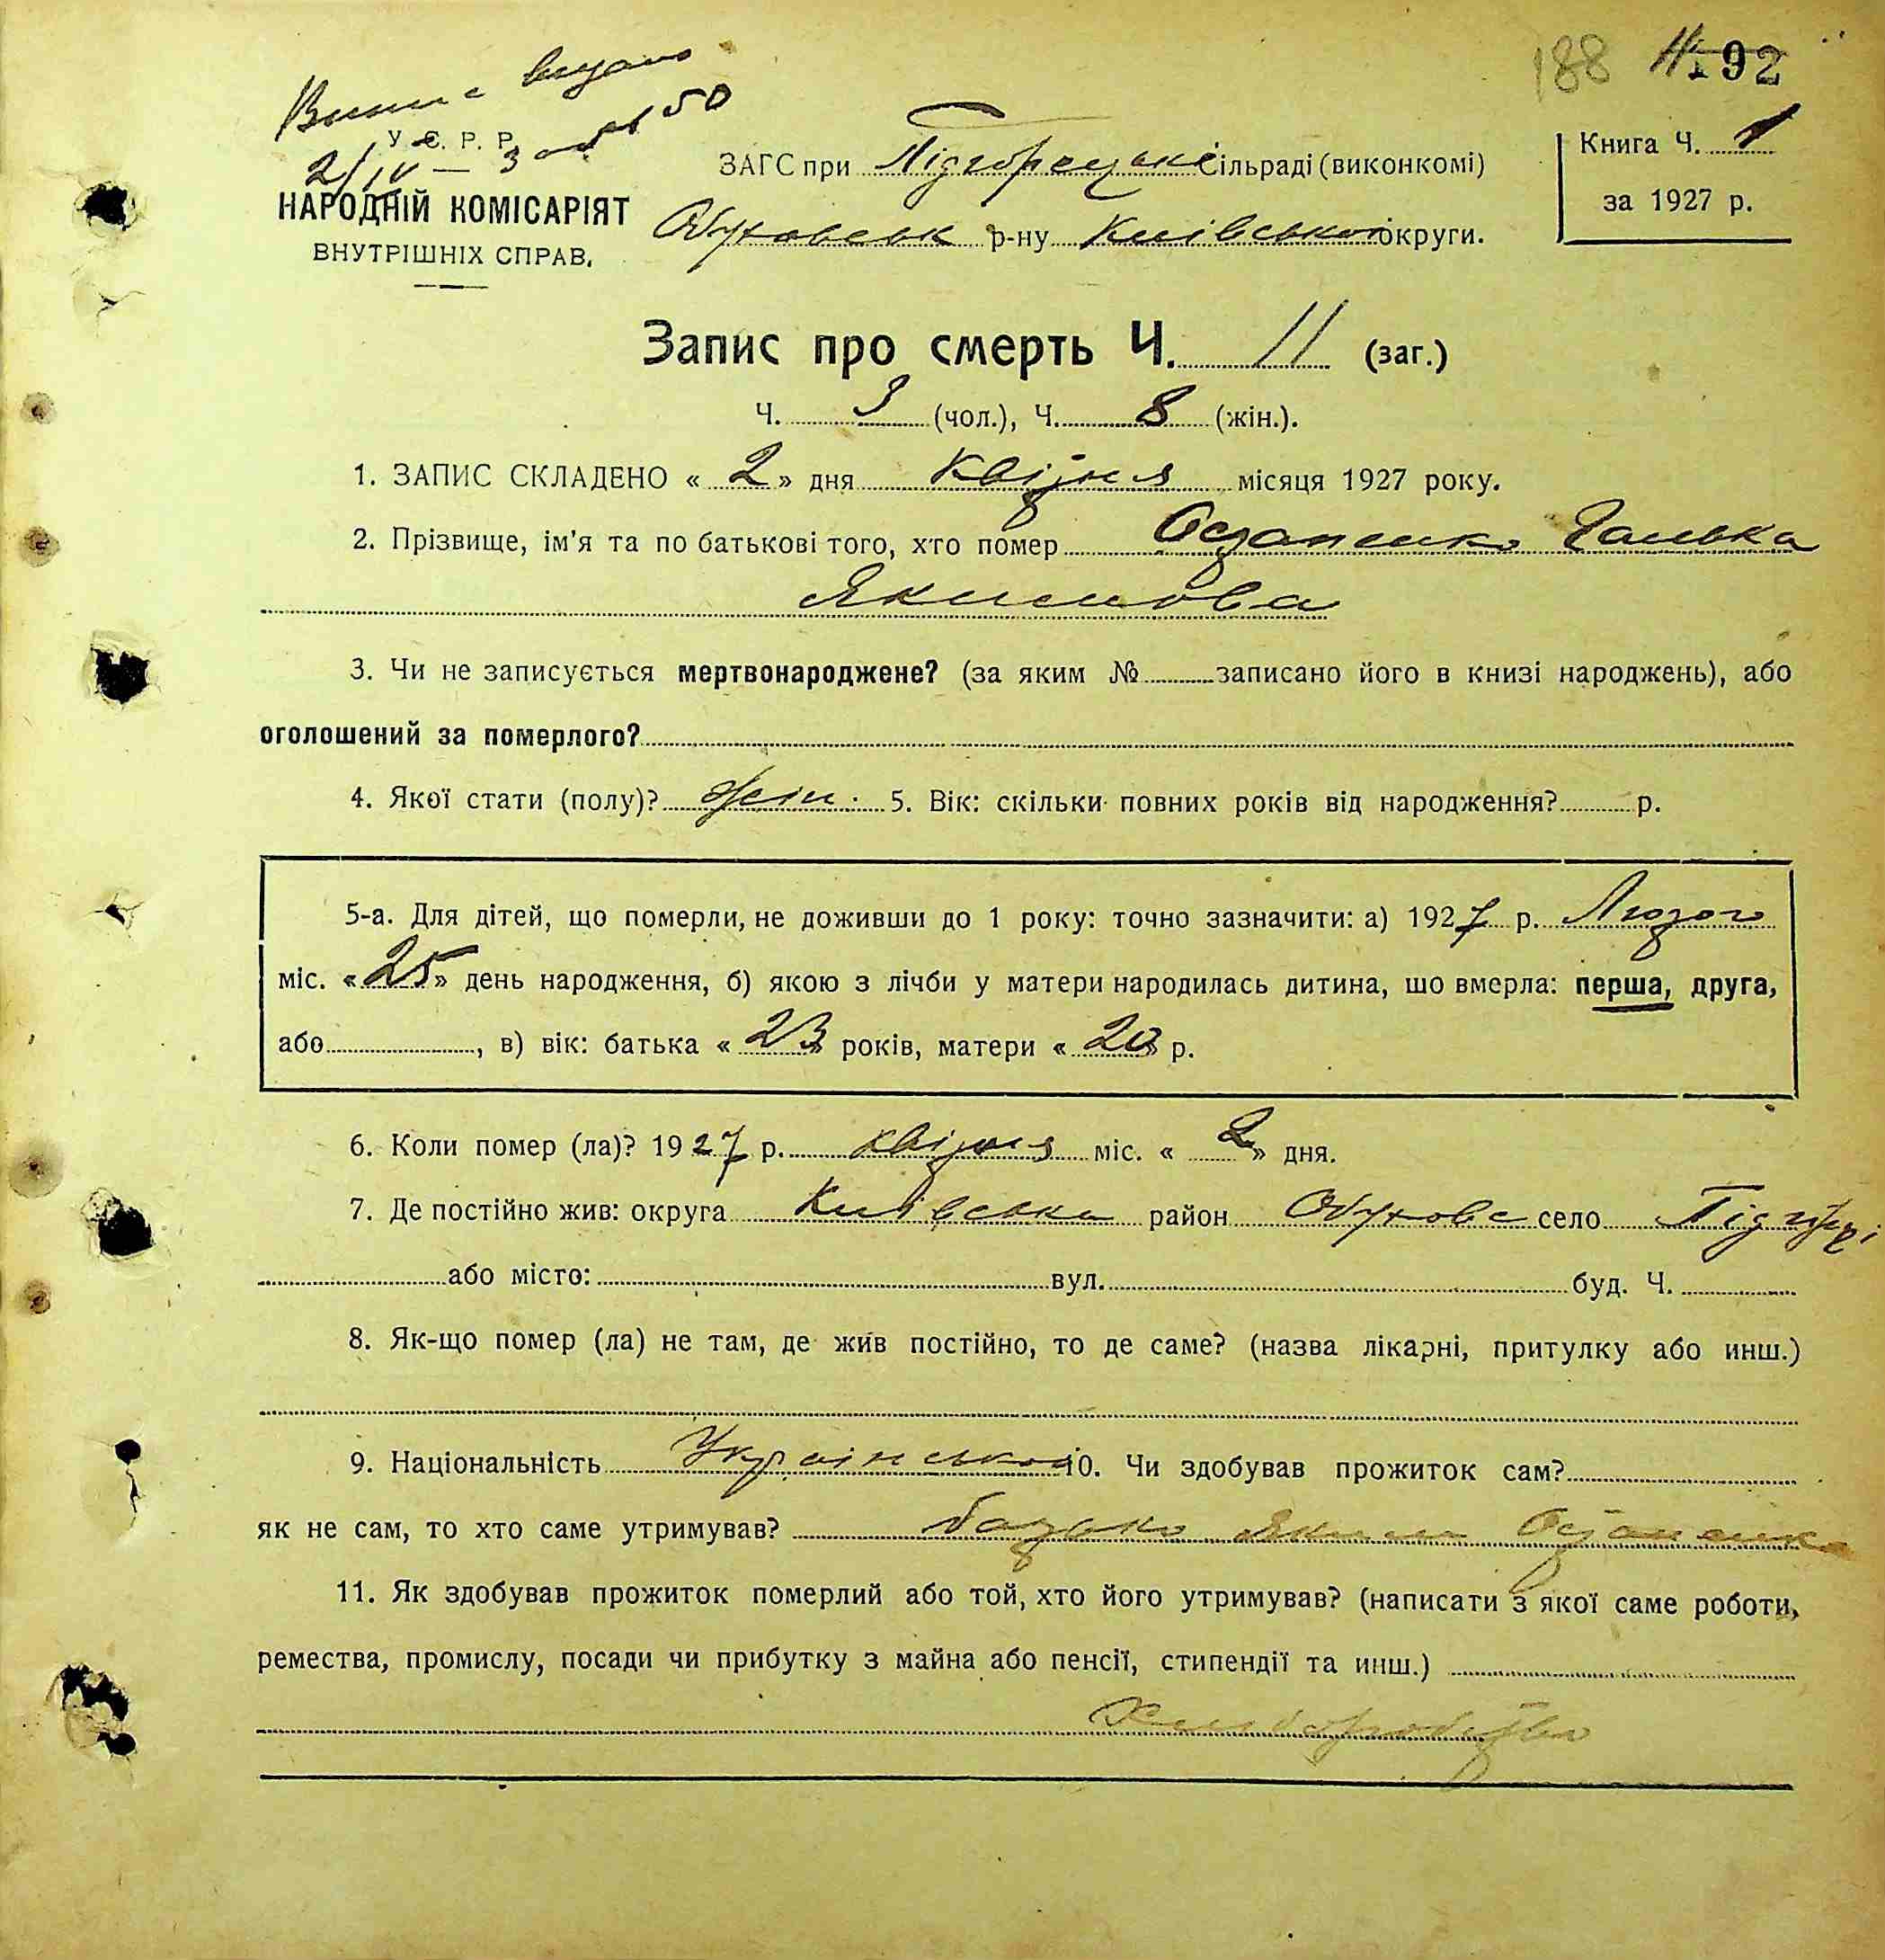 188 192
Випис видано
У. С. Р. Р.
2/IV — 3
НАРОДНІЙ КОМІСАРІЯТ
ВНУТРІШНІХ СПРАВ.
ЗАГС при Підгорецькі Сільраді (виконкомі)
Обуховськ р-ну Київської округи.
Книга Ч. 1
за 1927 р.
Запис про смерть Ч. 11 (заг.)
Ч. 3 (чол.), Ч. 8 (жін.).
1. ЗАПИС СКЛАДЕНО « 2 » дня Квітня місяця 1927 року.
2. Прізвище, ім'я та по батькові того, хто помер Остапенко Галька
Якимова
3. Чи не записується мертвонароджене? (за яким № записано його в книзі народжень), або
оголошений за померлого?
4. Якої стати (полу)? Жін. 5. Вік: скільки повних років від народження? р.
5-а. Для дітей, що померли, не доживши до 1 року: точно зазначити: а) 1927 р. Лютого
міс. « 25 » день народження, б) якою з лічби у матери народилась дитина, шо вмерла: перша, друга,
або , в) вік: батька « 23 » років, матери « 20 » р.
6. Коли помер (ла)? 1927 р. квітня міс. « 2 » дня.
7. Де постійно жив: округа Київська район Обуховс село Підгірці
або місто: вул. буд. Ч.
8. Як-що помер (ла) не там, де жив постійно, то де саме? (назва лікарні, притулку або инш.)
9. Національність Українська 10. Чи здобував прожиток сам?
як не сам, то хто саме утримував? батько Яким Остапенко
11. Як здобував прожиток померлий або той, хто його утримував? (написати з якої саме роботи,
ремества, промислу, посади чи прибутку з майна або пенсії, стипендії та инш.)
Хліборобство